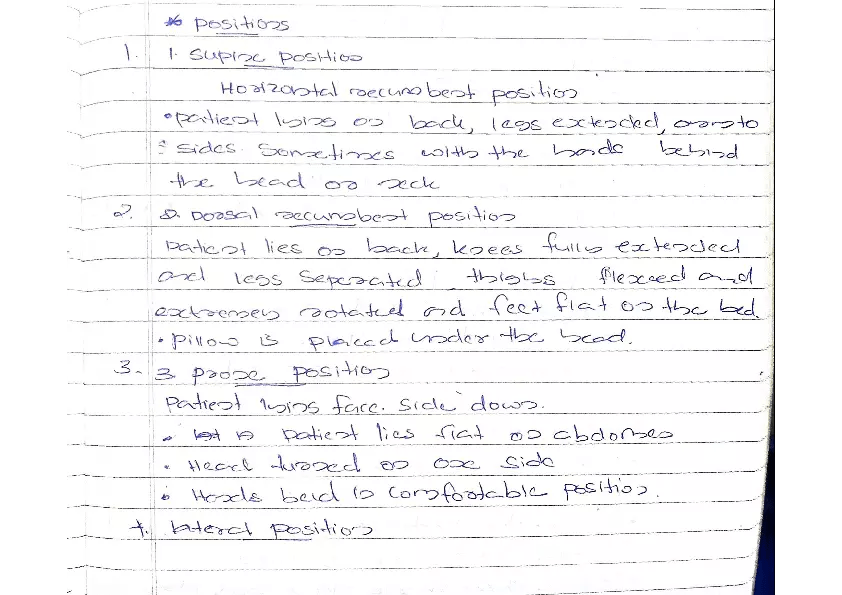 * positions
1. 1. supine position
Horizontal recumbent position
• patient lying on back, legs extended, arm to
: sides sometimes with the hands behind
the head or neck
2. 2. Dorsal recumbent position
patient lies on back, knees fully extended
and legs seperated thighs flexeed and
extremely rotated and feet flat on the bed.
• pillow is placed under the head.
3. 3 prone position
patient lying face side down.
• patient lies flat on abdomen
• Head turned on one side
• Hands bend in comfortable position.
4. lateral position